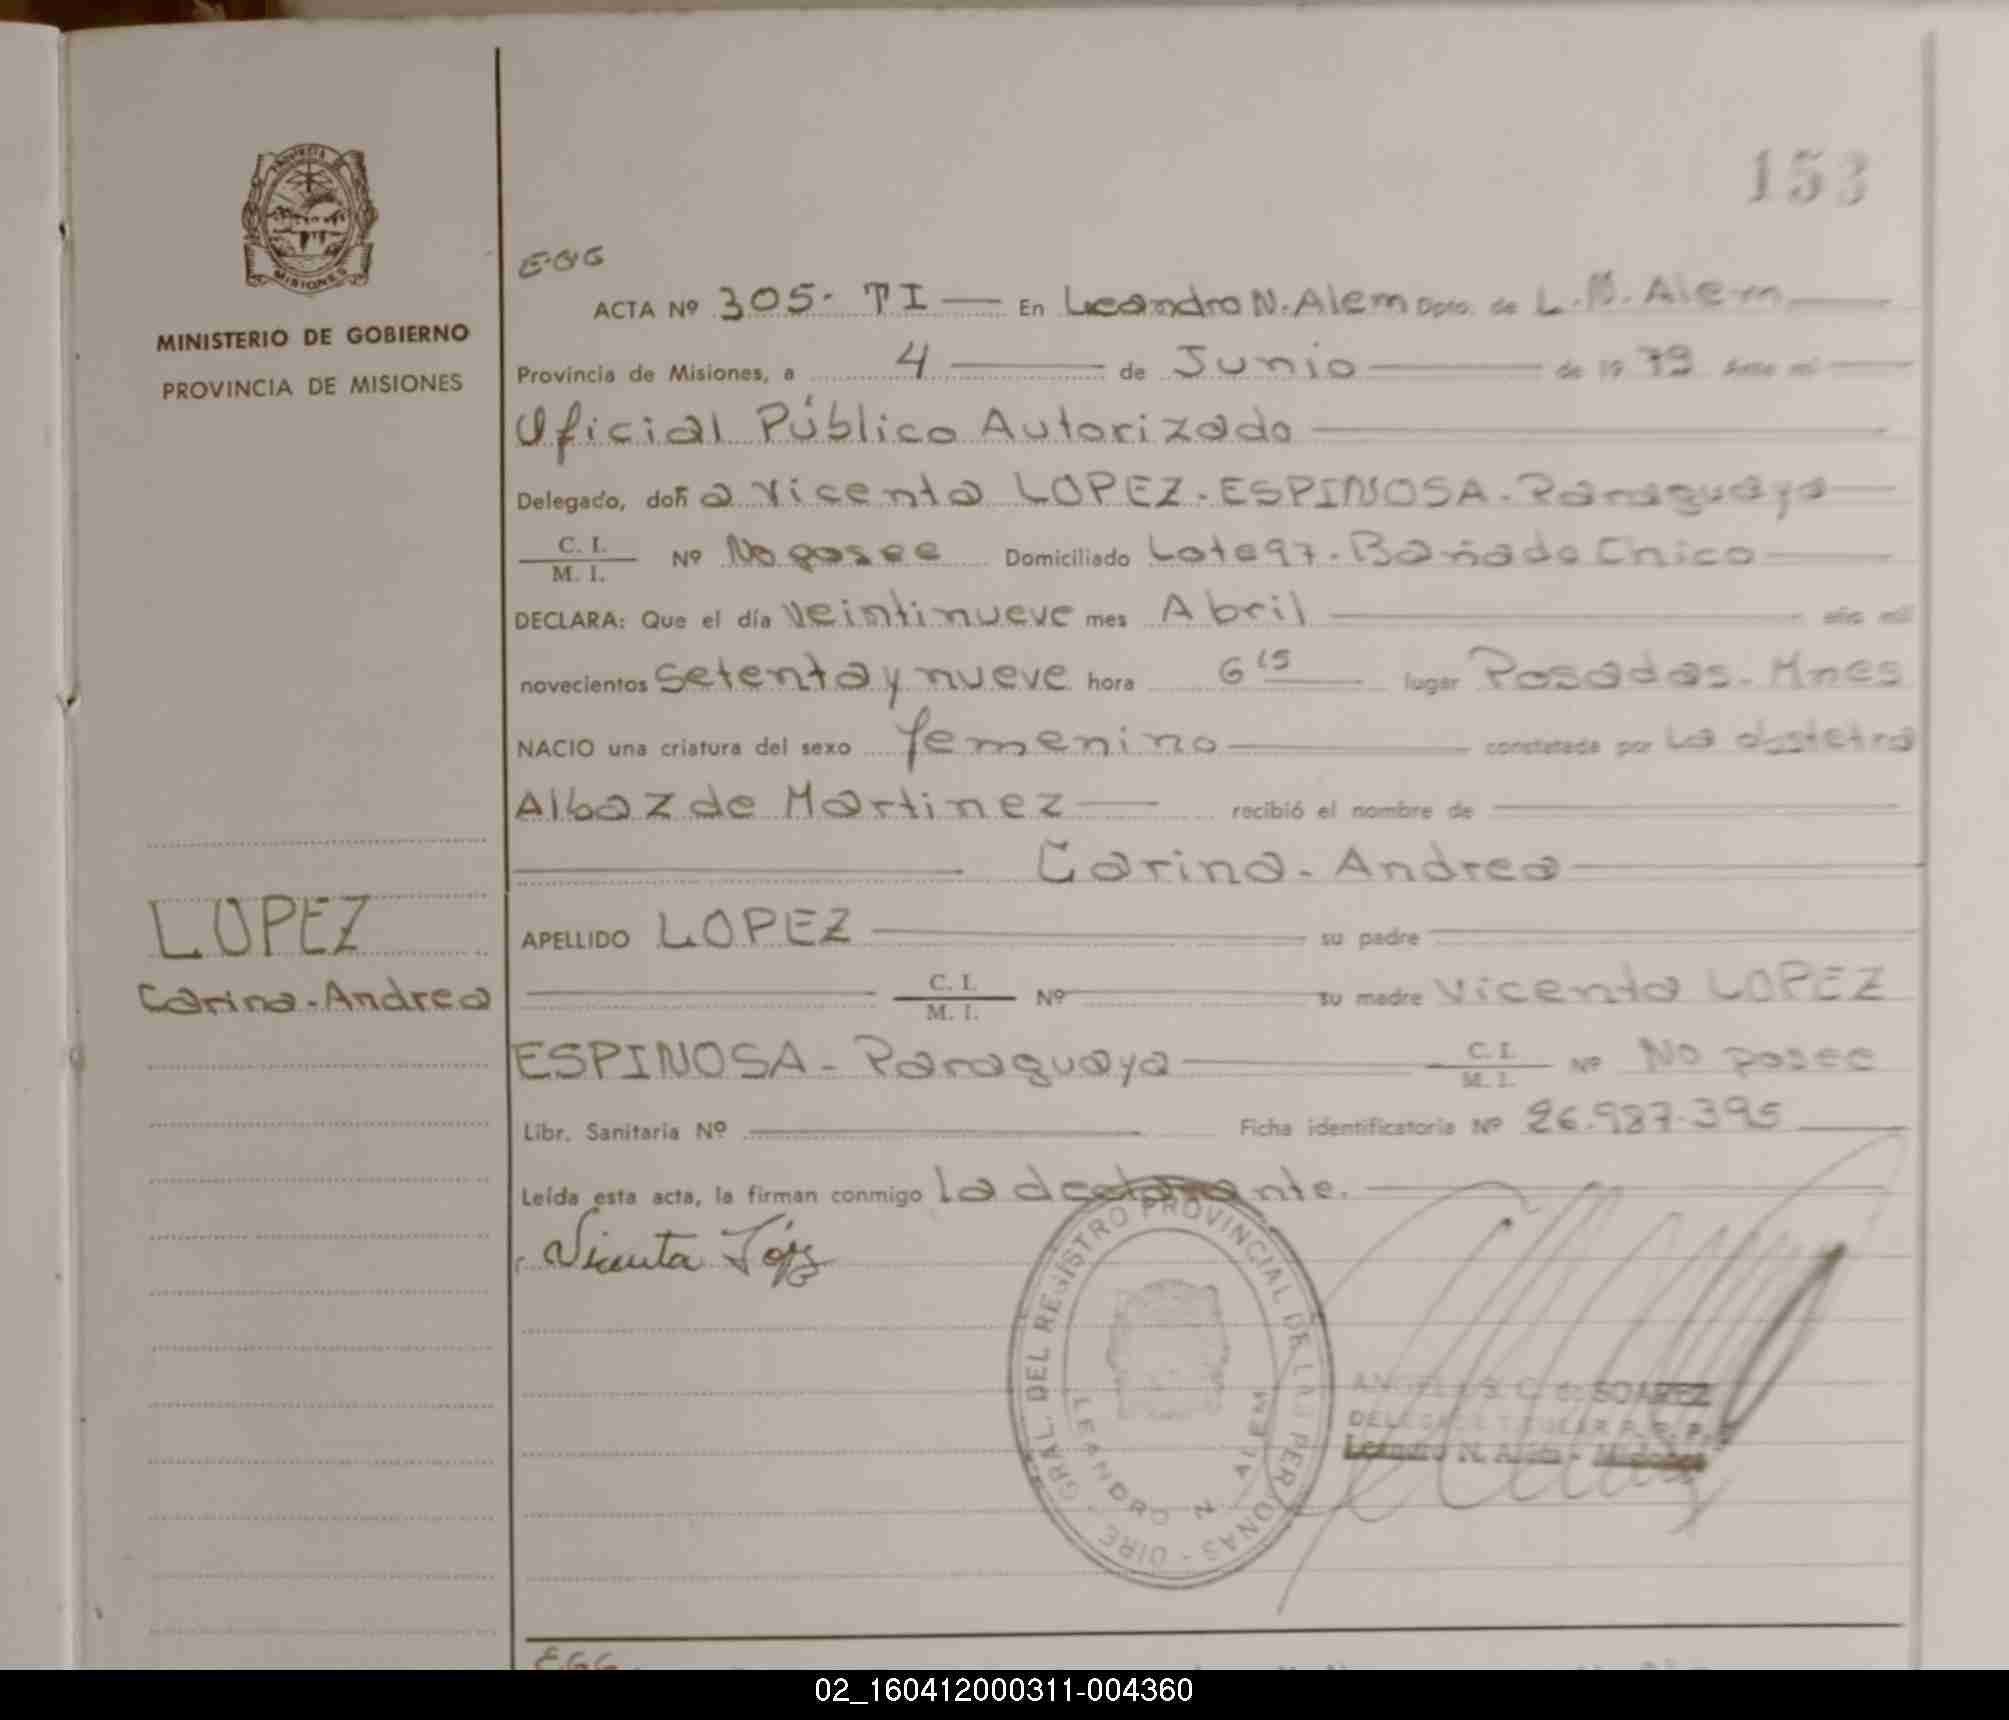 153
PROVINCIA DE
MISIONES
MINISTERIO DE GOBIERNO
PROVINCIA DE MISIONES
ACTA Nº 305- TI En Leandro N. Alem Dpto. de L. N. Alem
Provincia de Misiones, a 4 de Junio de 1979 Ante mí
Oficial Público Autorizado
Delegado, doña Vicenta LOPEZ - ESPINOSA - Paraguaya
C. I.
M. I. Nº No posee Domiciliado Lote 97 - Bañado Chico
DECLARA: Que el día veintinueve mes Abril año mil
novecientos setenta y nueve hora 6 15 lugar Posadas - Mnes
NACIO una criatura del sexo femenino constatada por La obstetra
Albaz de Martinez recibió el nombre de
Carina - Andrea
LOPEZ
Carina - Andrea
APELLIDO LOPEZ su padre
C. I.
M. I. Nº su madre Vicenta LOPEZ
ESPINOSA - Paraguaya C. I.
M. I. Nº No posee
Libr. Sanitaria Nº Ficha identificatoria Nº 26.987.395
Leída esta acta, la firman conmigo la declarante.
Vicenta López
DIRE - GRAL. DEL REGISTRO PROVINCIAL DE LAS PERSONAS
LEANDRO N. ALEM
C. de SOAREZ
DELEGADA TITULAR R. P. P.
Leandro N. Alem - Misiones
02_160412000311-004360